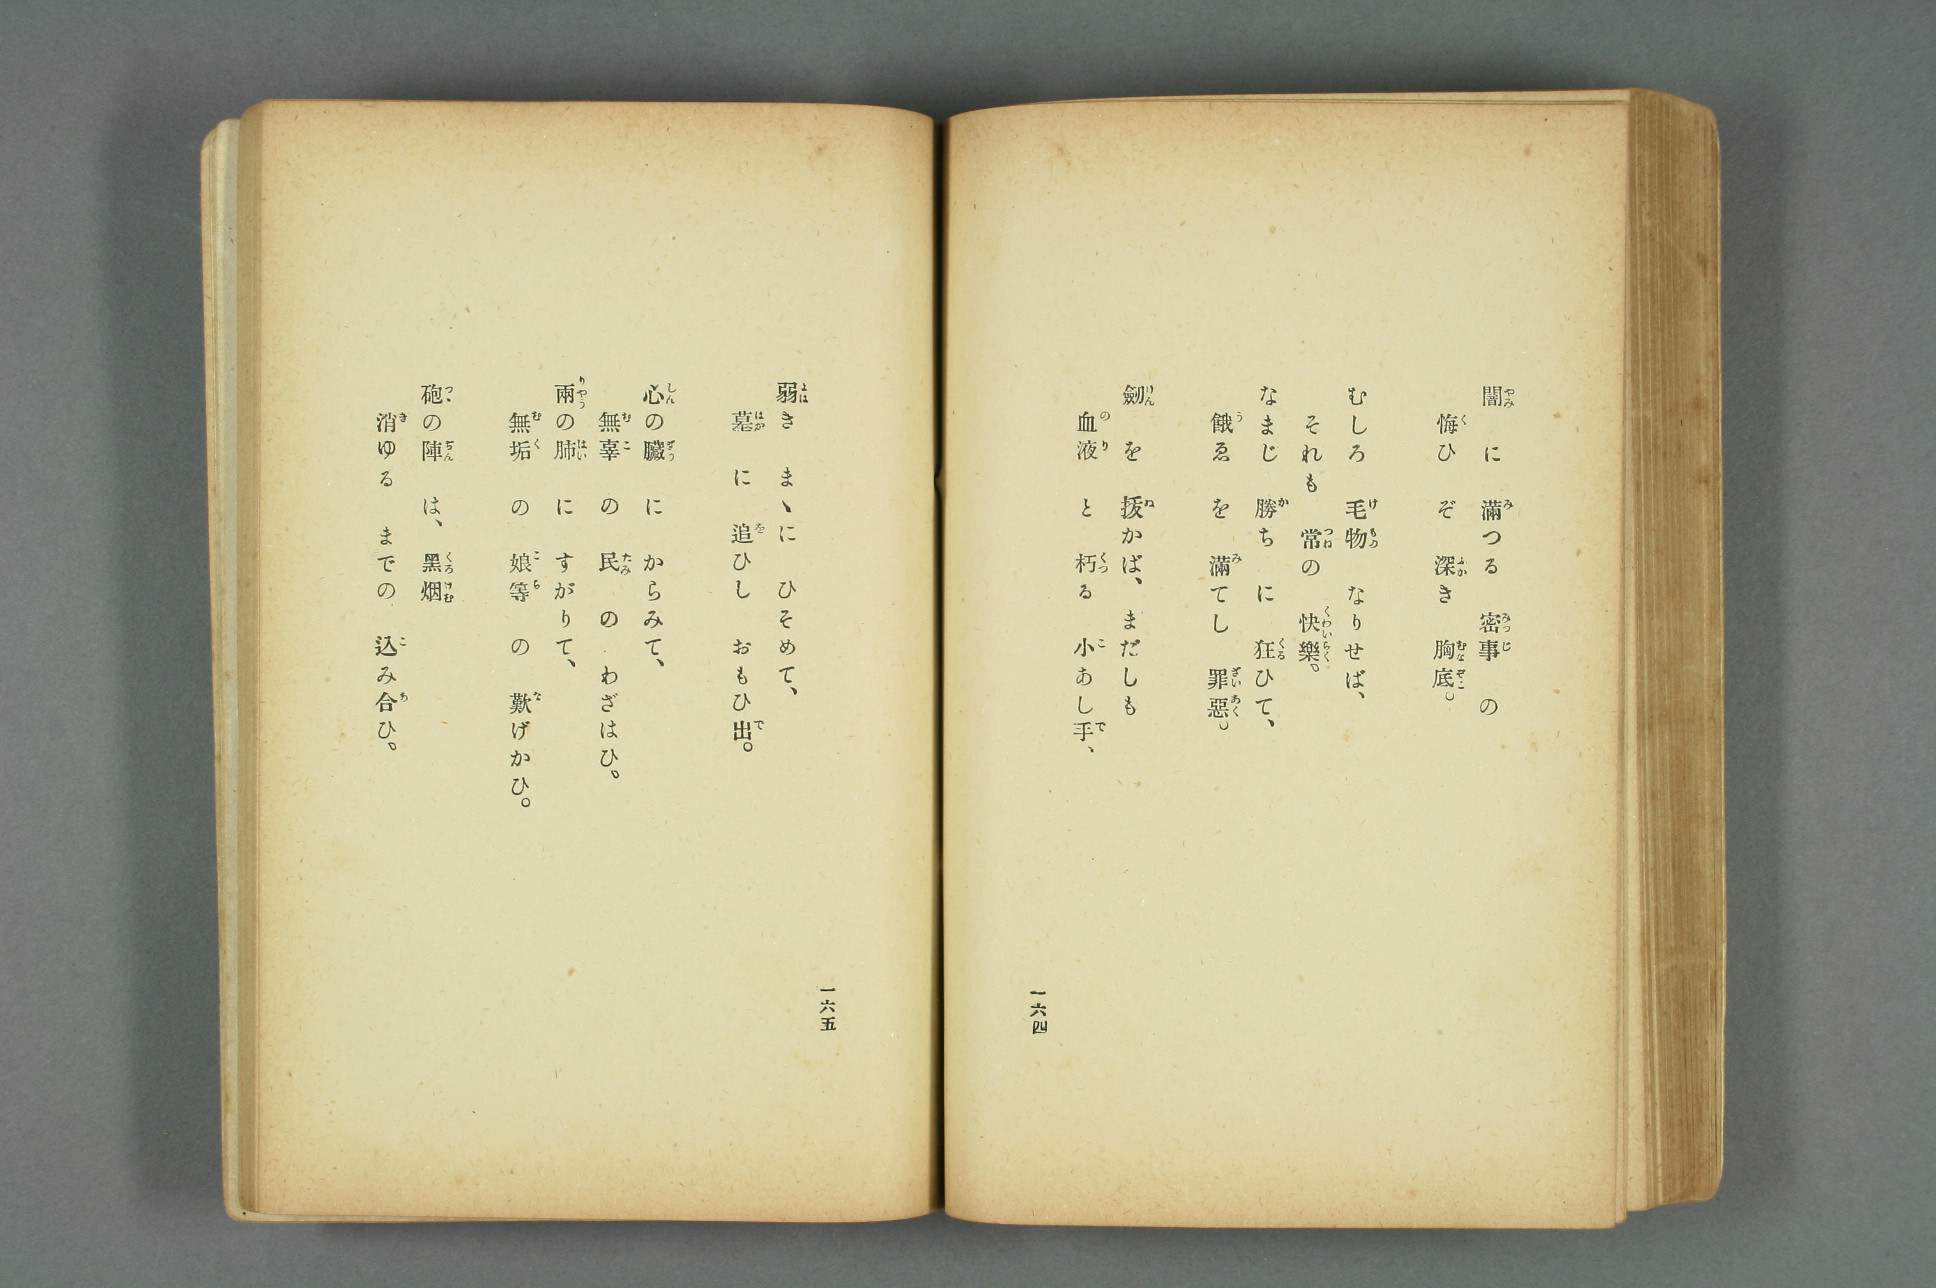 闇 に 滿つる 密事 の
悔ひ ぞ 深き 胸底。
むしろ 毛物 なりせば、
それも 常の 快樂。
なまじ 勝ち に 狂ひて、
餓ゑ を 滿てし 罪惡。
劒 を 拔かば、まだしも
血液 と 朽る 小あし手、
一六四
弱き まゝに ひそめて、
墓 に 追ひし おもひ出。
心の臟 に からみて、
無辜 の 民 の わざはひ。
兩の肺 に すがりて、
無垢 の 娘等 の 歎げかひ。
砲の陣 は、黑烟
消ゆる までの 込み合ひ。
一六五